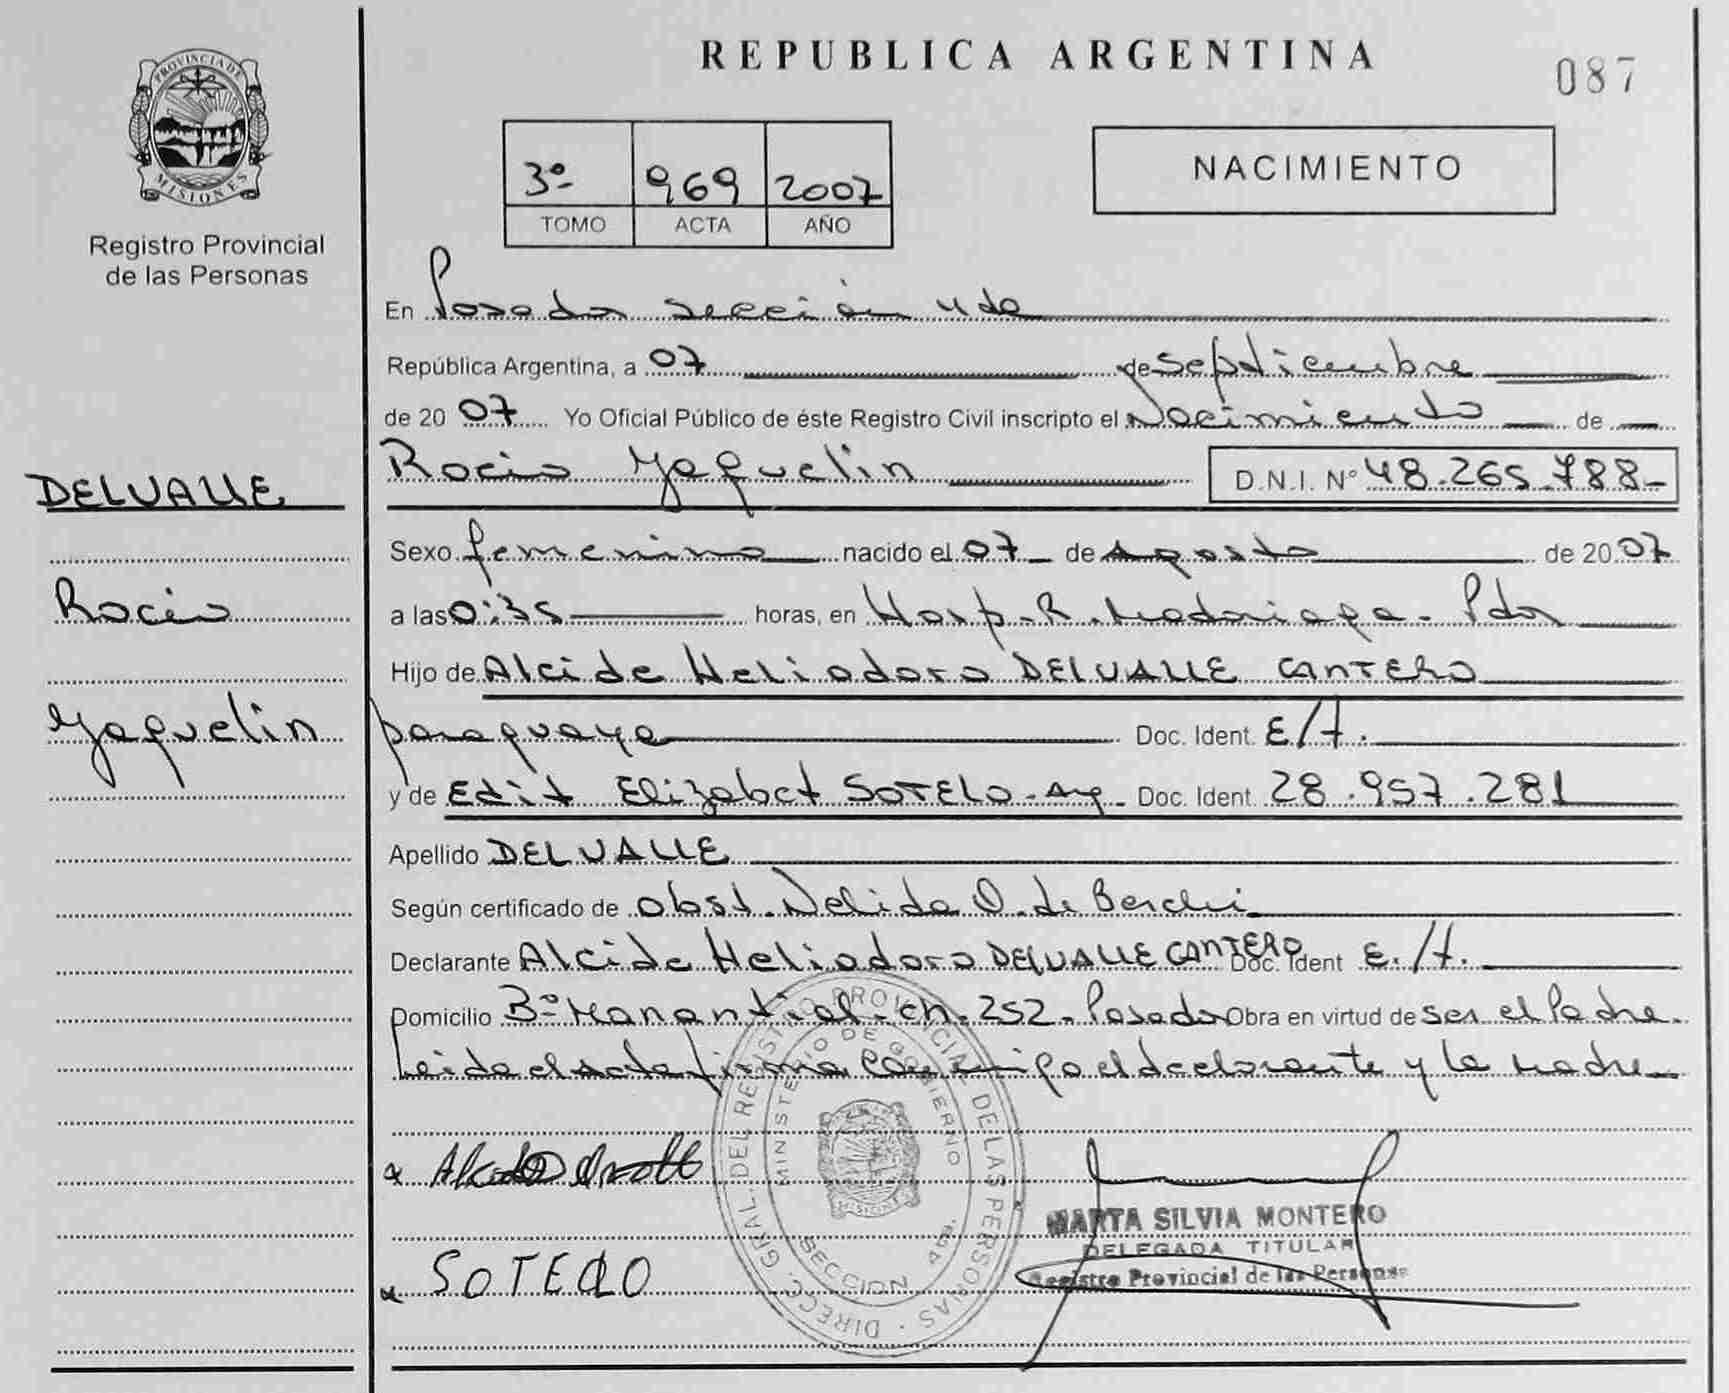 REPUBLICA ARGENTINA
087
PROVINCIA DE
MISIONES
Registro Provincial
de las Personas
3º 969 2007
TOMO ACTA AÑO
NACIMIENTO
En Posadas sección 4ta
República Argentina, a 07 de Septiembre
de 20 07 Yo Oficial Público de éste Registro Civil inscripto el Nacimiento de
Rocio Yaquelin D.N.I. Nº 48.265.788-
DELVALLE
Sexo femenino nacido el 07 de Agosto de 20 07
Rocio
a las 0:35 horas, en Hosp. R. Madariaga - Pdas
Hijo de Alcide Heliodoro DELVALLE CANTERO
Yaquelin
paraguaya Doc. Ident. E/t.
y de Edit Elizabet SOTELO - Arg. Doc. Ident. 28.957.281
Apellido DELVALLE
Según certificado de obst. Nelida O. de Berchi
Declarante Alcide Heliodoro DELVALLE CANTERO Doc. Ident E./t.
Domicilio Bº Manantial - ch. 252 - Posadas Obra en virtud de ser el Padre.
Leida el acta firma conmigo el declarante y la madre
SOTELO
DIRECC. GRAL. DEL REGISTRO PROVINCIAL DE LAS PERSONAS
MINISTERIO DE GOBIERNO
MISIONES
SECCION 4ta.
MARTA SILVIA MONTERO
DELEGADA TITULAR
Registro Provincial de las Personas